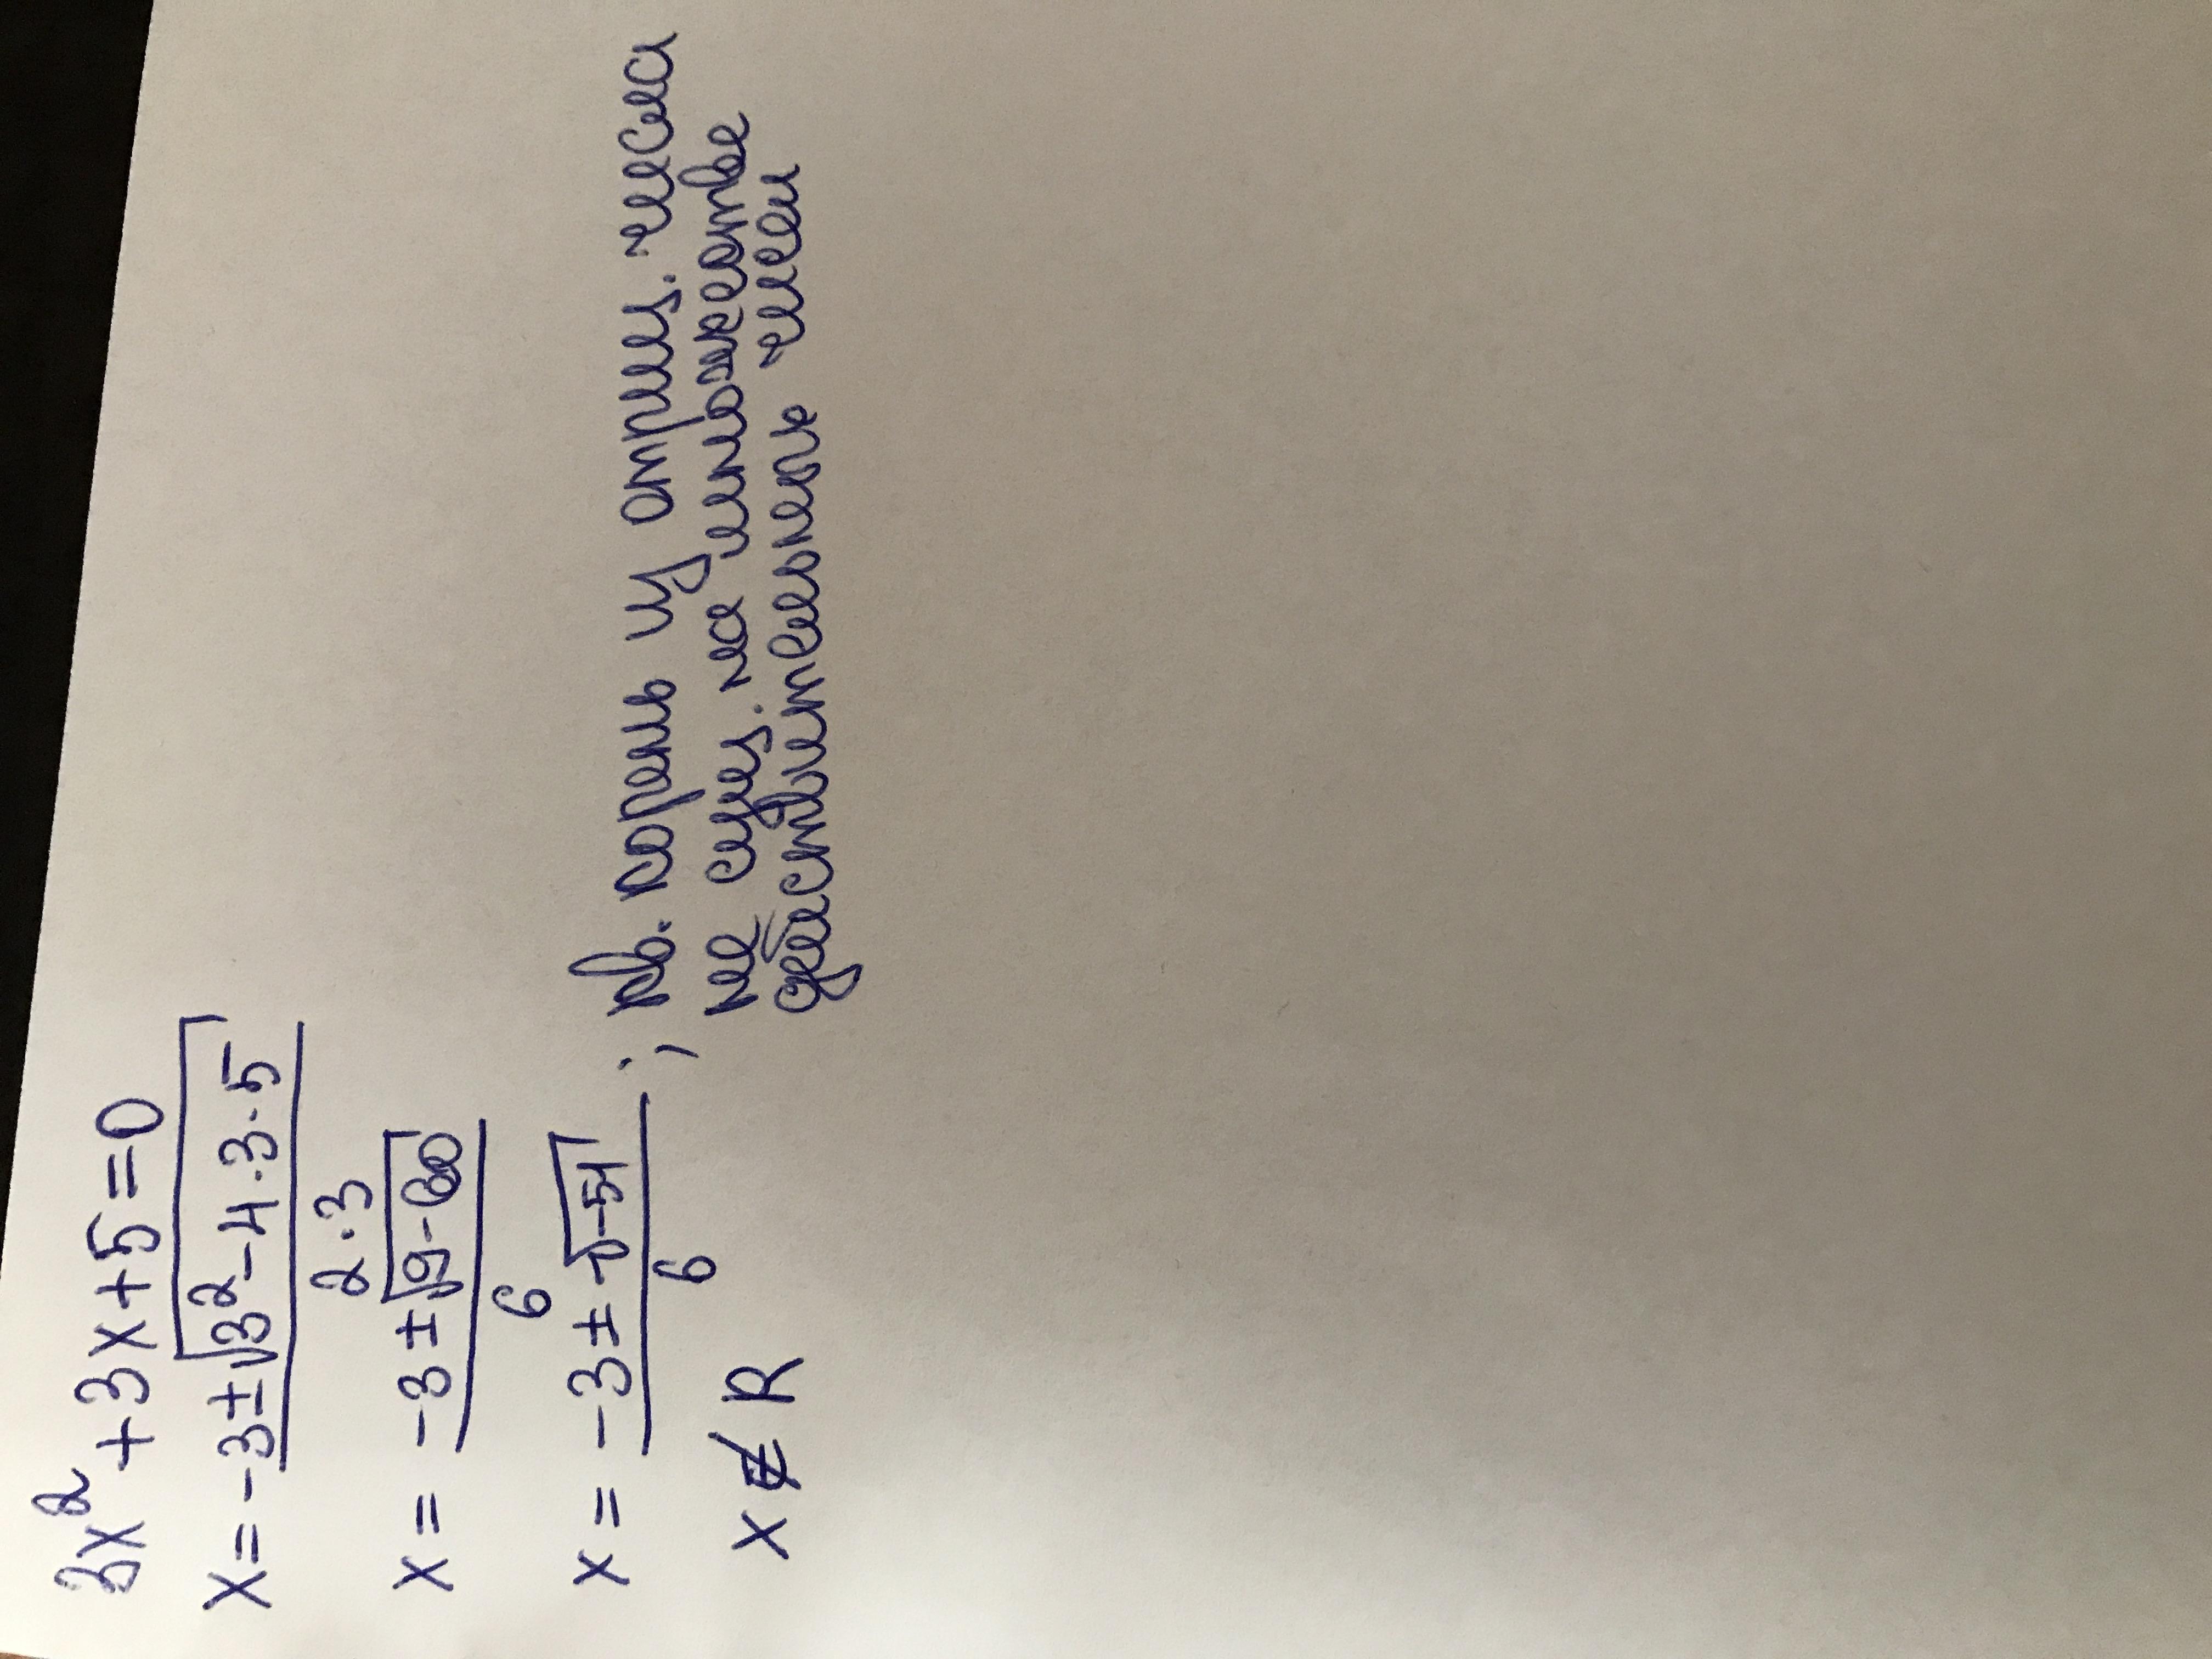 3x² + 3x + 5 = 0
x = -3 ± √(3² - 4 · 3 · 5) / 2 · 3
x = -3 ± √(9 - 60) / 6
x = -3 ± √(-51) / 6 ; кв. корень из отриц. числа
не сущ. на множестве
действительных чисел
x ∉ R